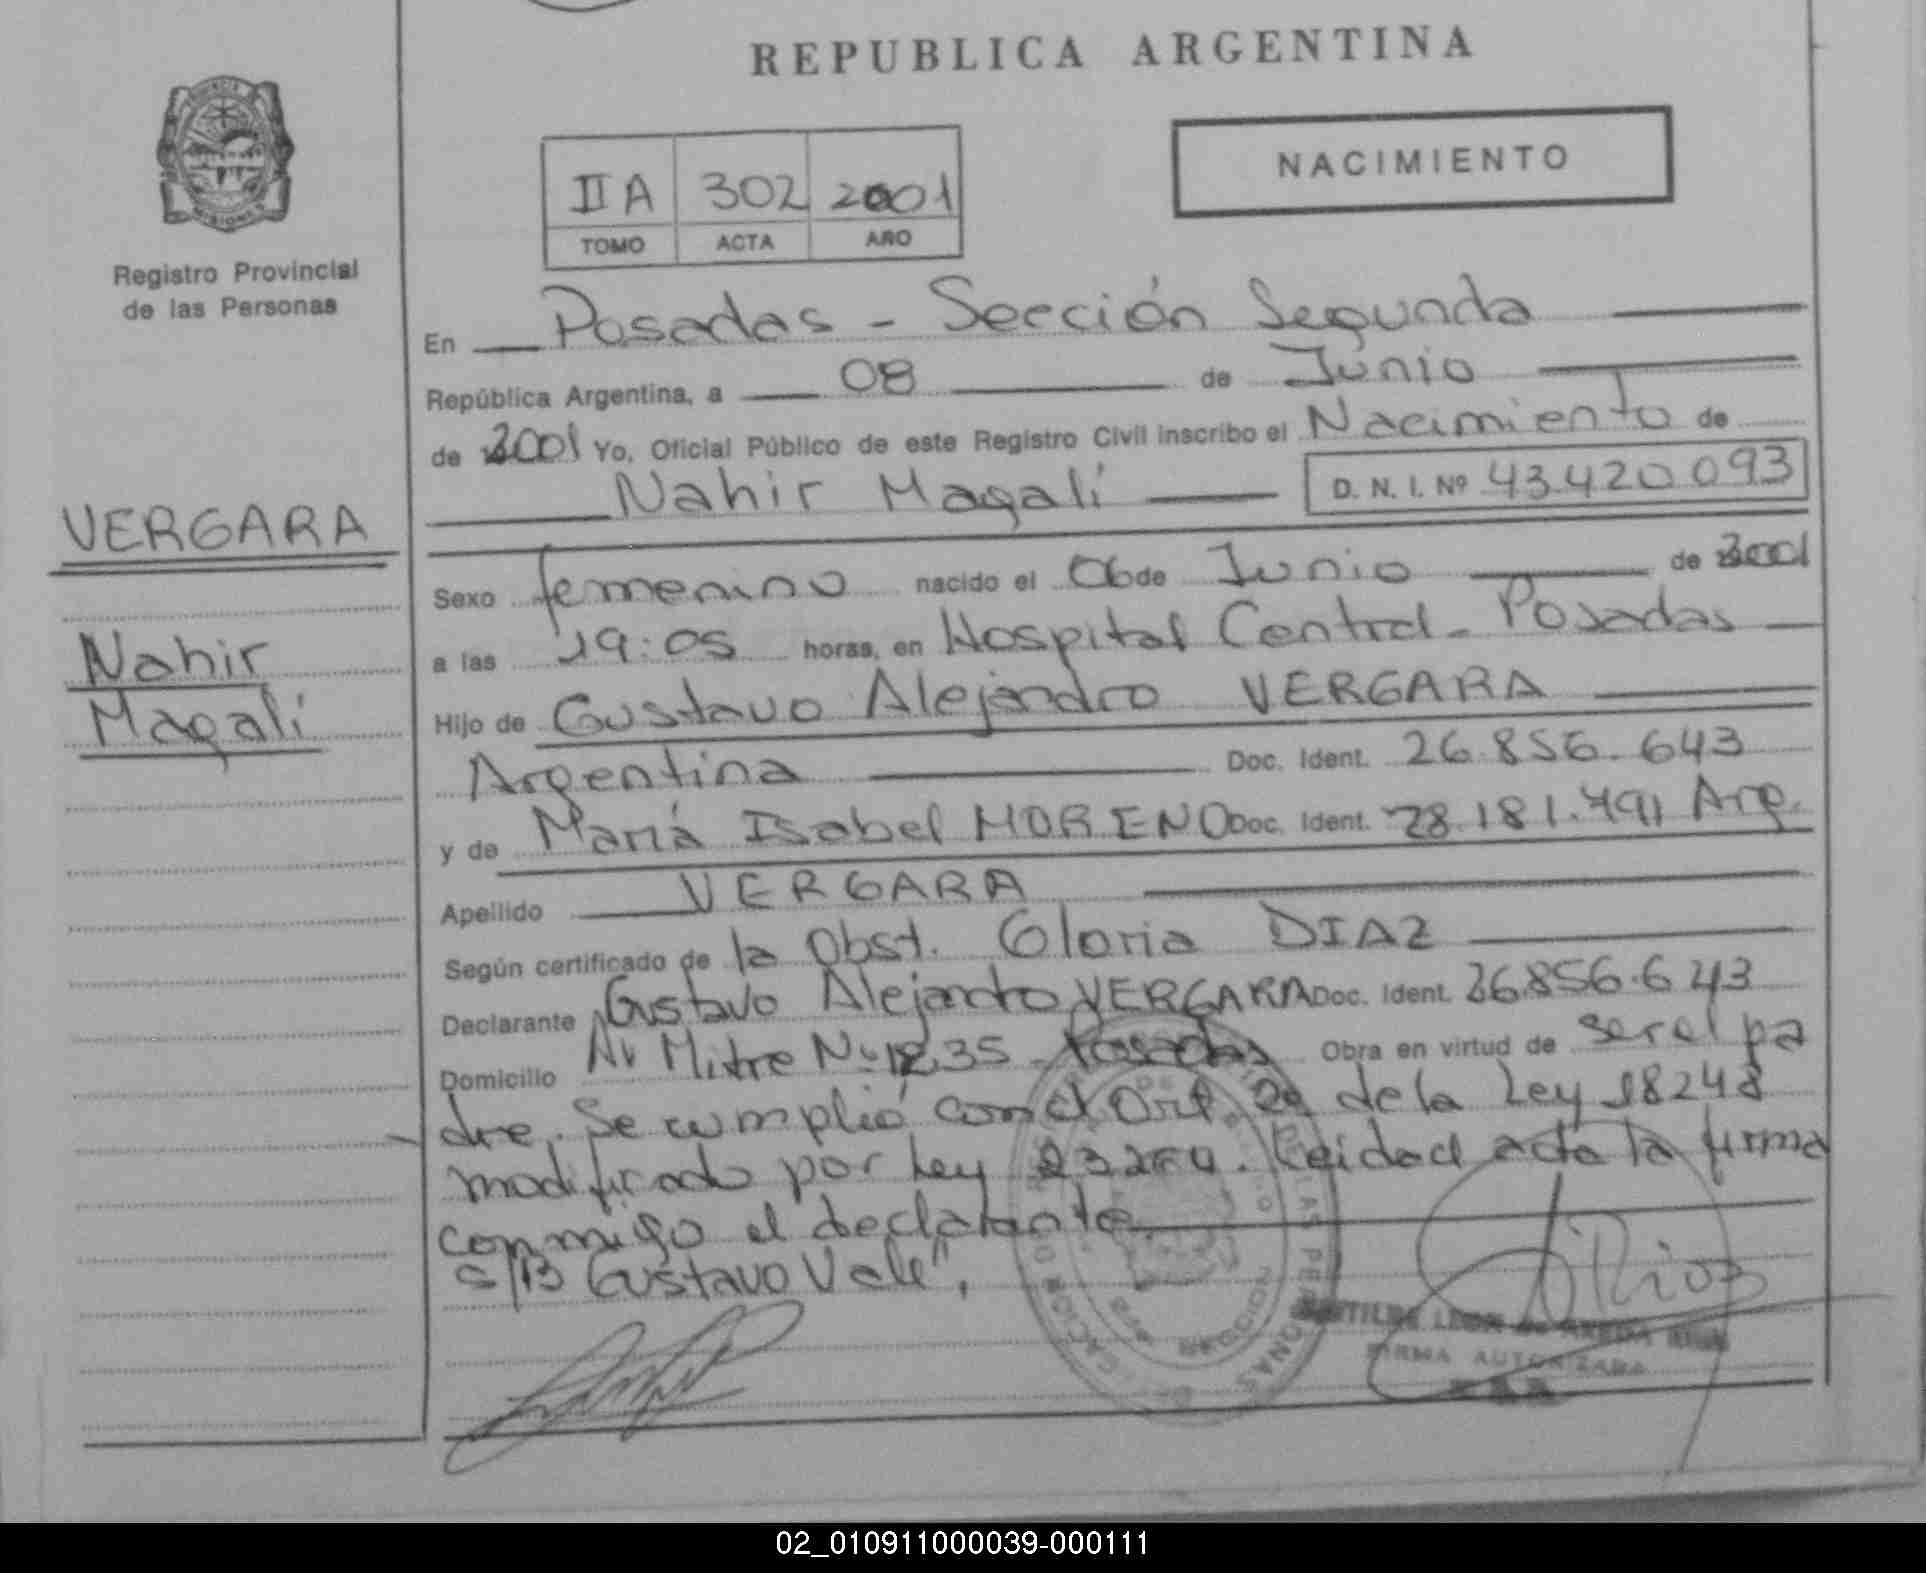 REPUBLICA ARGENTINA
NACIMIENTO
IIA 302 2001
TOMO ACTA AÑO
Registro Provincial
de las Personas
VERGARA
Nahir
Magalí
En Posadas - Sección Segunda
República Argentina, a 08 de Junio
de 2001 Yo, Oficial Público de este Registro Civil inscribo el Nacimiento de
Nahir Magalí D. N. I. Nº 43.420.093
Sexo femenino nacido el 06 de Junio de 2001
a las 19:05 horas, en Hospital Central - Posadas
Hijo de Gustavo Alejandro VERGARA
Argentina Doc. Ident. 26.856.643
y de María Isabel MORENO Doc. Ident. 28.181.491 Arg.
Apellido VERGARA
Según certificado de la Obst. Gloria DIAZ
Declarante Gustavo Alejandro VERGARA Doc. Ident. 26.856.643
Domicilio Av Mitre Nº 1235 - Posadas Obra en virtud de ser el pa
dre. Se cumplió con el Art. 2º de la Ley 18248
modificado por Ley Leida el acta la firma
conmigo el declarante
S/B Gustavo Vale".
Rios
FIRMA AUTORIZADA
02_010911000039-000111